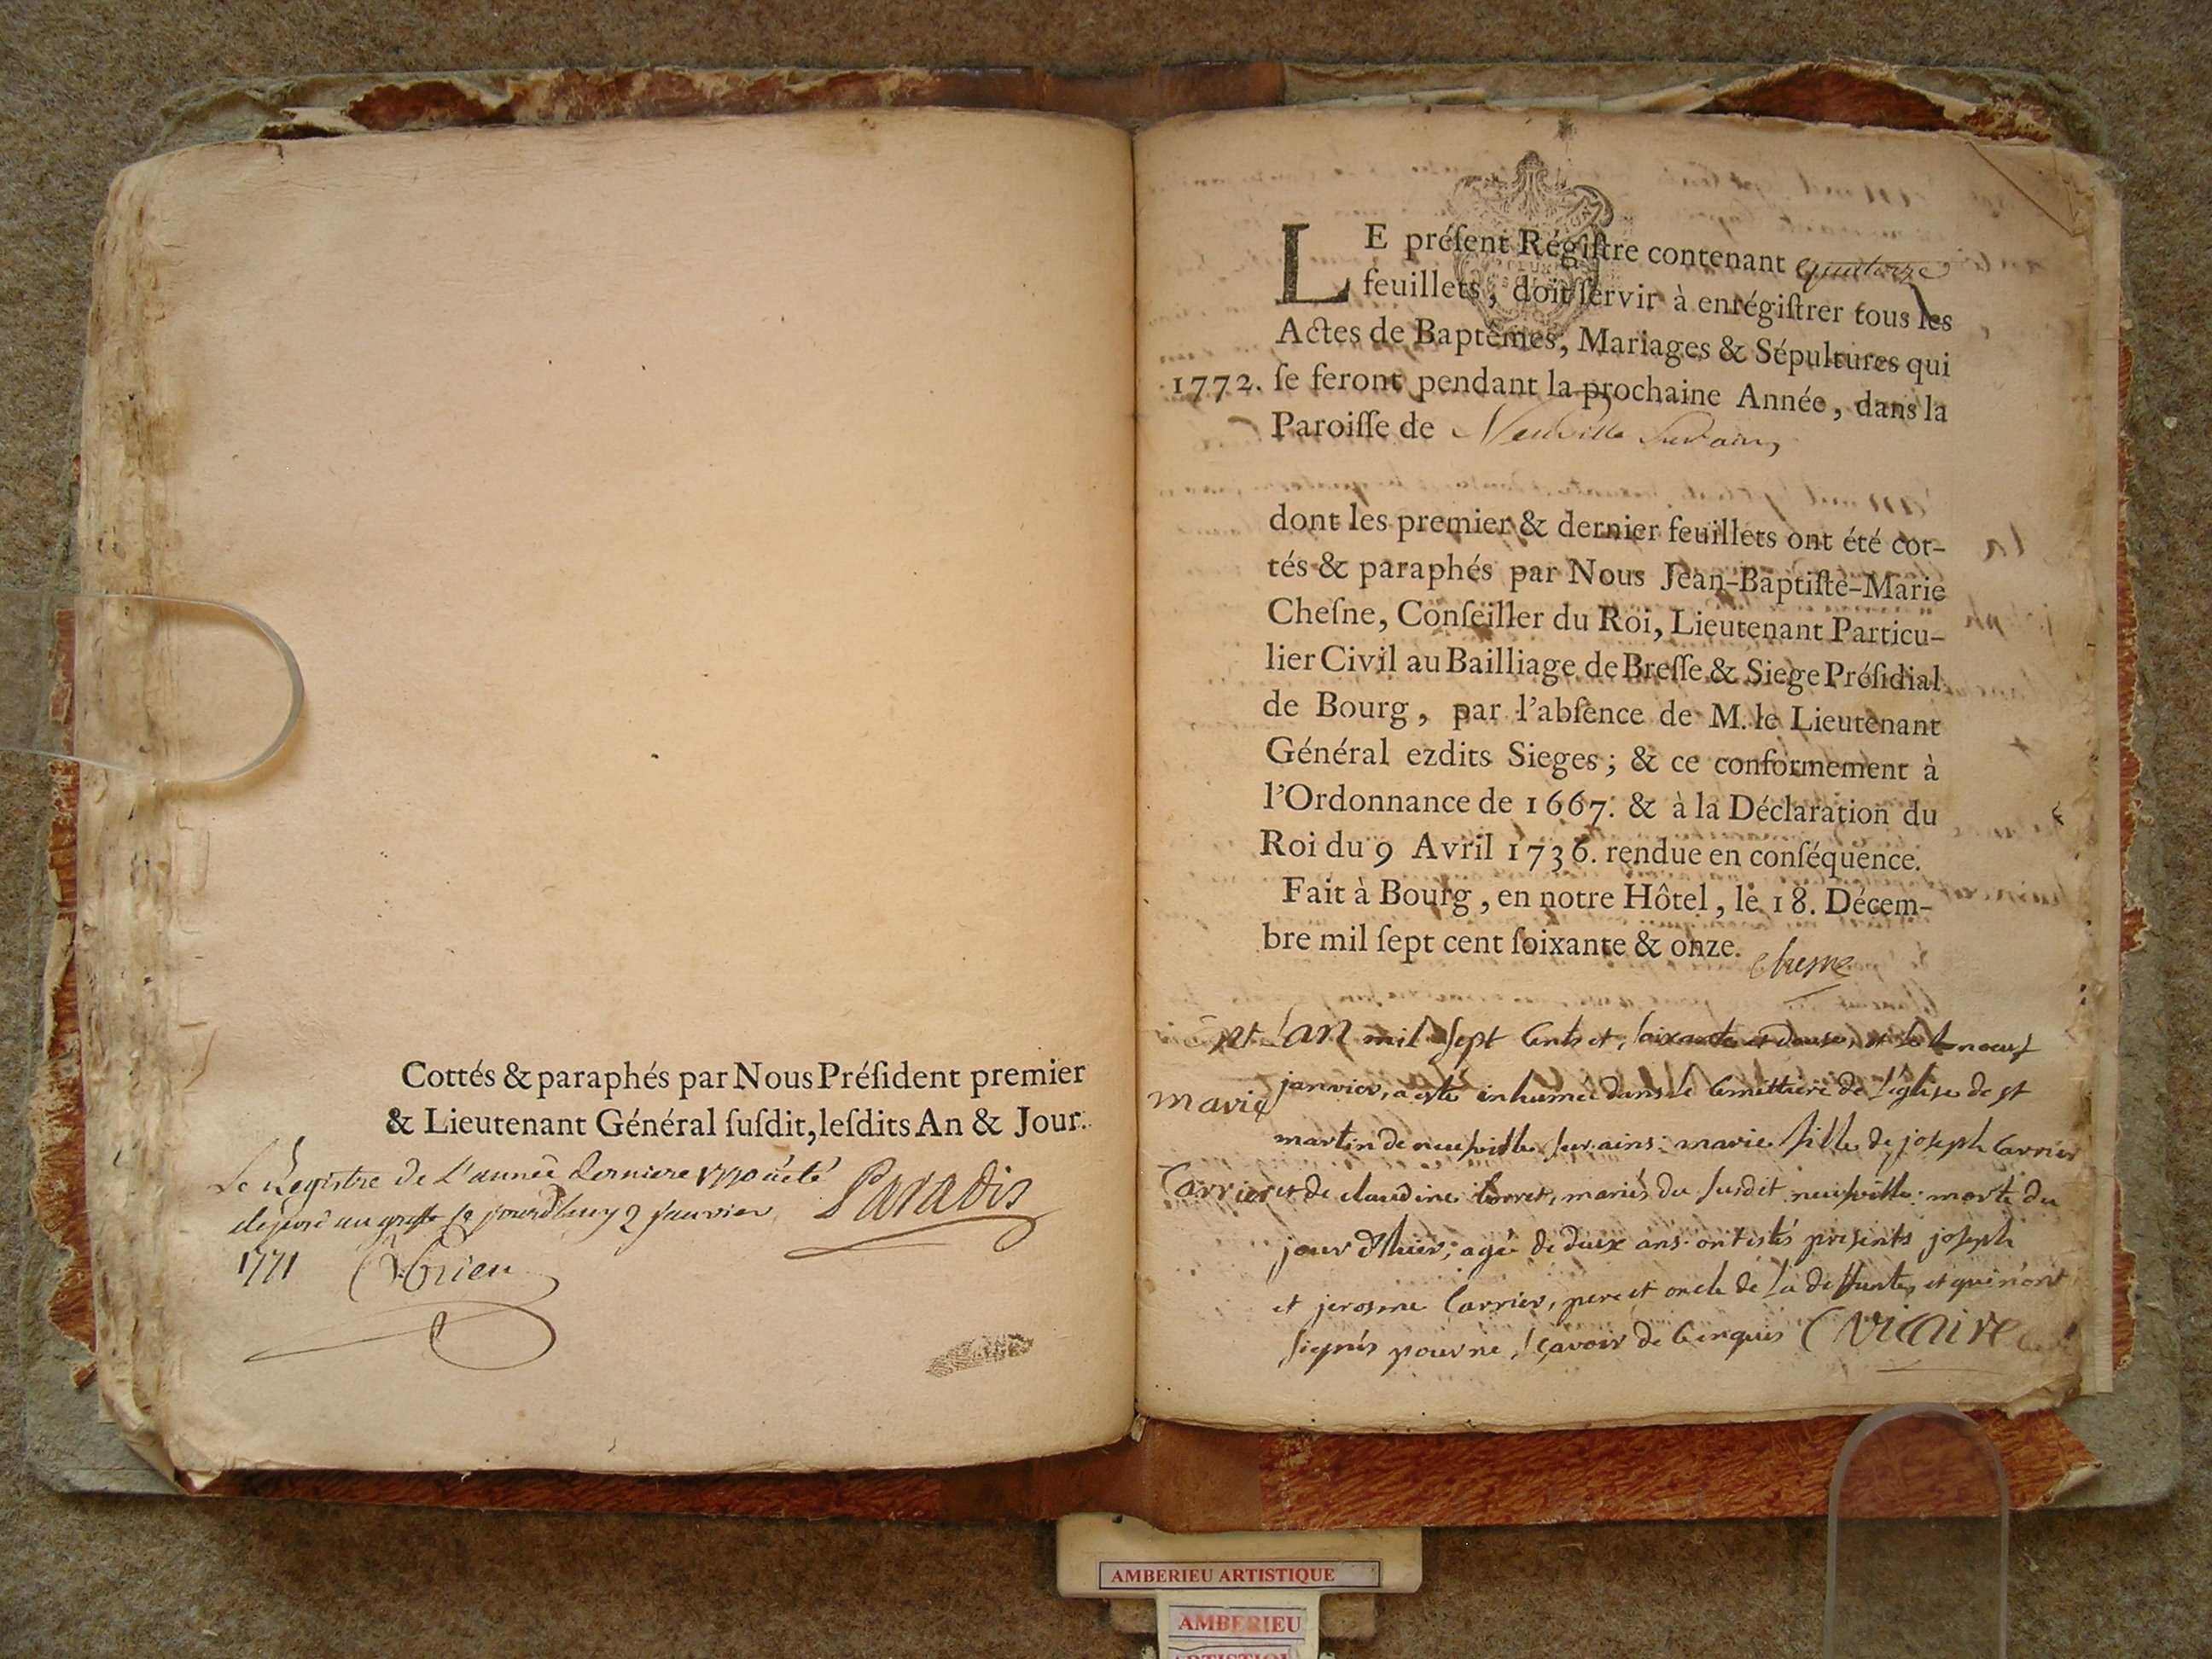 Cottés & paraphés par Nous Préſident premier
& Lieutenant Général ſuſdit, leſdits An & Jour.
Le Registre de l'année derniere 1770 a été
au greffe ce jourdhuy 2 janvier
1771
Paradis
LE préſent Régiſtre contenant quatorze
feuillets, doit ſervir à enrégiſtrer tous les
Actes de Baptêmes, Mariages & Sépultures qui
1772. ſe feront pendant la prochaine Année, dans la
Paroiſſe de Neuville Sur ain,
dont les premier & dernier feuillets ont été cot-
tés & paraphés par Nous Jean-Baptiſte-Marie
Cheſne, Conſeiller du Roi, Lieutenant Particu-
lier Civil au Bailliage de Breſſe & Siege Préſidial
de Bourg, par l'abſence de M. le Lieutenant
Général ezdits Sieges; & ce conformement à
l'Ordonnance de 1667. & à la Déclaration du
Roi du 9 Avril 1736. rendue en conſéquence.
Fait à Bourg, en notre Hôtel, le 18. Décem-
bre mil ſept cent ſoixante & onze.
Chesne
Lan mil Sept Cents et, soixante et douse, et le neuf
marie
janvier, a esté inhumée dans le Cemittiere de l'église de st
martin de neufville sur ains: marie fille de joseph Carrier
Carrier
et de claudine, mariés du susdit neufville: morte du
jour d'hier; agée de deux ans. ont estés presents joseph
et jerosme Carrier, pere et oncle de la deffunte, et qui n'ont
signés pour ne sçavoir de ce enquis Cviaire
AMBERIEU ARTISTIQUE
AMBERIEU
ARTISTIQUE